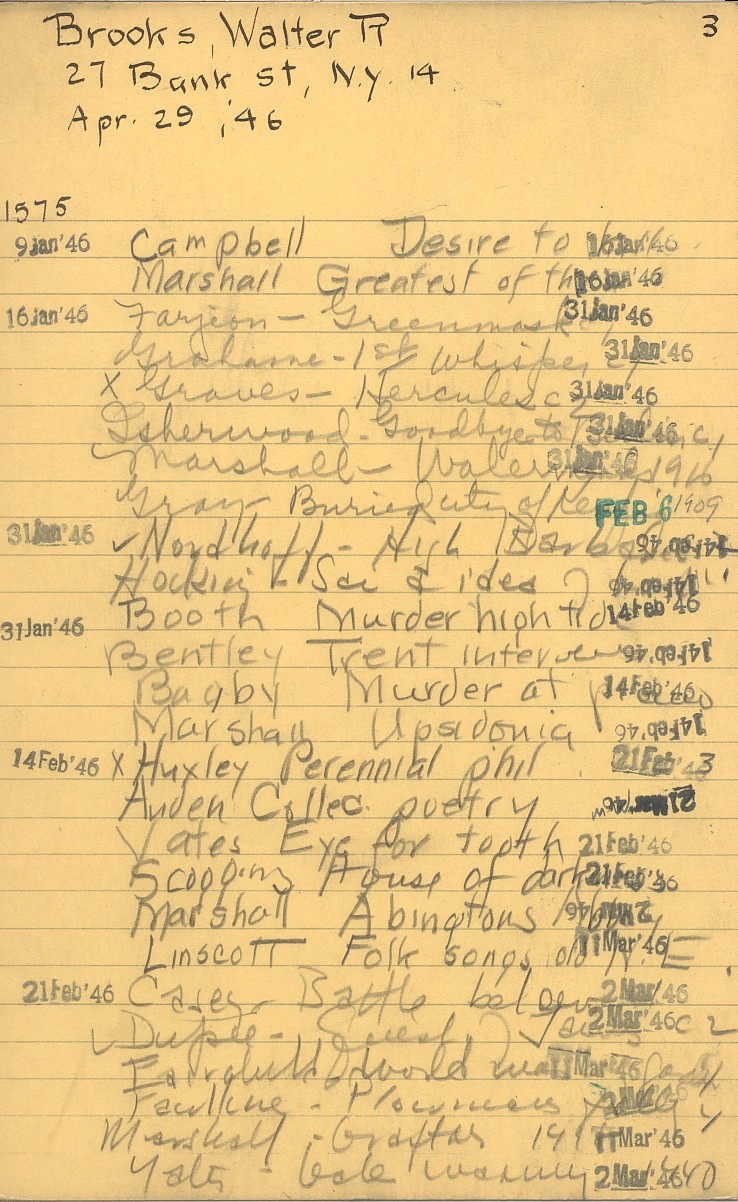 Brooks, Walter R 3
27 Bank St, N.Y. 14
Apr. 29, '46
1575
9 Jan '46 Campbell Desire to 16 Jan '46
Marshall Greatest of th 16 Jan '46
16 Jan '46 Farjeon - Greenmask 31 Jan '46
Grahame - 1st Whisper 31 Jan '46
X Graves - Hercules 31 Jan '46
Isherwood - Goodbye to 31 Jan '46
Marshall - 31 Jan '46 1910
Gray - Buried city of Ke FEB 6 1909
31 Jan '46 ✓ Nordhoff - High 14 Feb '46
Hocking Sci & idea 14 Feb '46
31 Jan '46 Booth Murder high tide 14 Feb '46
Bentley Trent interven 14 Feb '46
Bagby Murder at 14 Feb '46
Marshall Upsidonia 14 Feb '46
14 Feb '46 X Huxley Perennial phil 21 Feb '46 3
Auden Collec. poetry 21 Mar '46
Yates Eye for tooth 21 Feb '46
Scoggins House of dark 21 Feb '46
Marshall Abingtons 2 Mar '46
Linscott Folk songs old N.E 11 Mar '46
21 Feb '46 Casey - Battle below 2 Mar '46
✓ 2 Mar '46 c 2
World 11 Mar '46
Faulkner -
Marshall - Graftons 11 Mar '46
Yates - Gale warning 2 Mar '46 1940